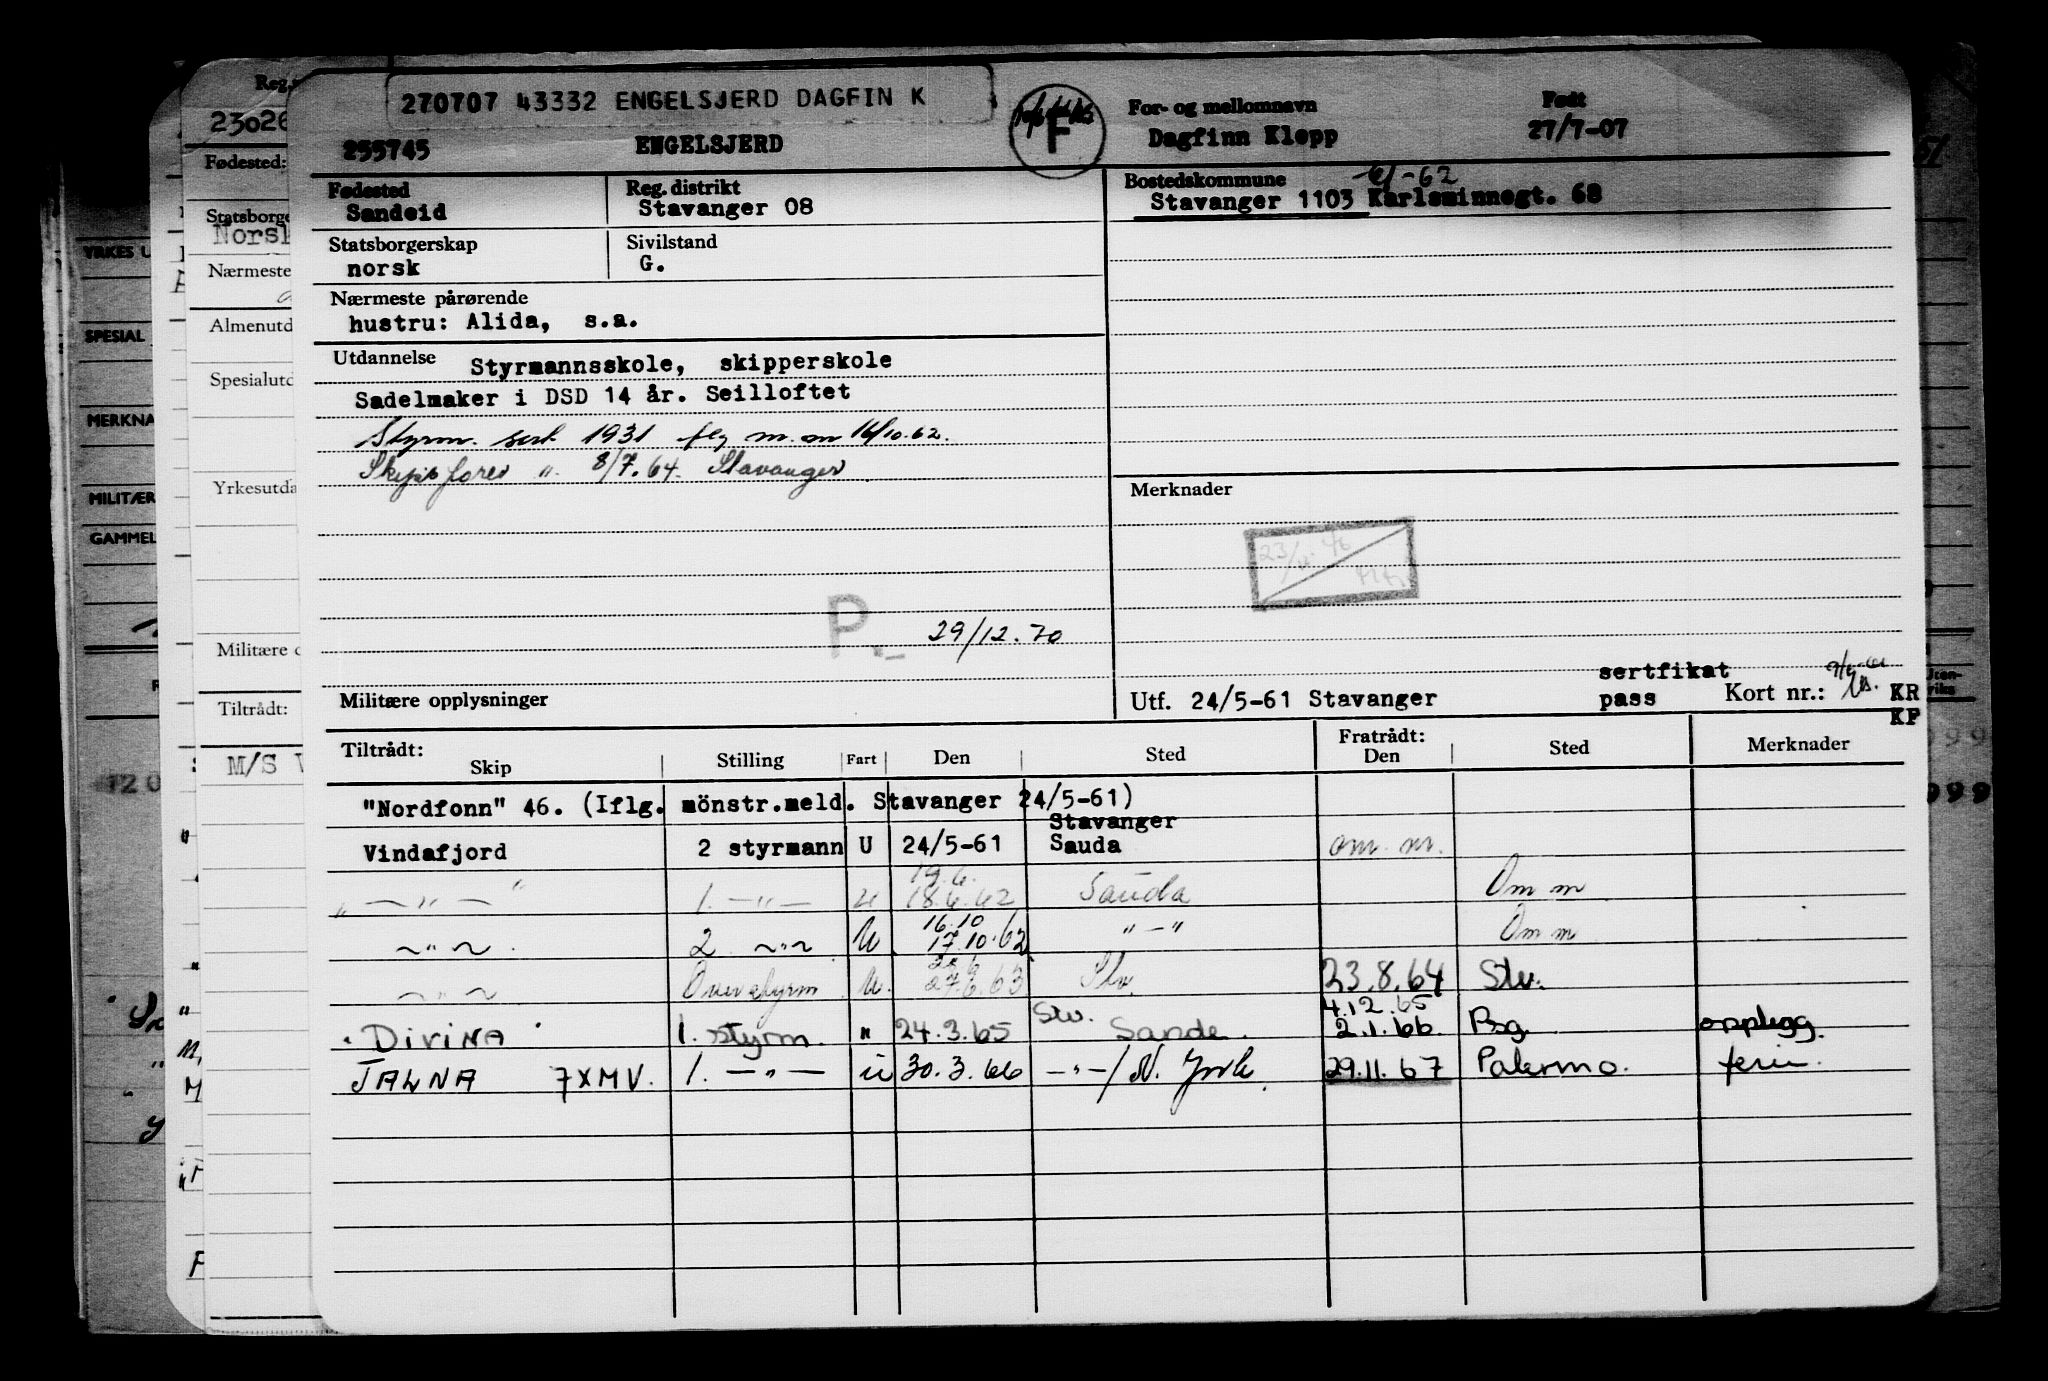 270707 43332 ENGELSJERD DAGFIN K
255745 ENGELSJERD
F
For- og mellomnavn
Dagfinn Klepp
Født
27/7-07
Fødested
Sandeid
Reg. distrikt
Stavanger 08
Bostedskommune -61-62
Stavanger 1103 Karlsminnegt. 68
Statsborgerskap
norsk
Sivilstand
G.
Nærmeste pårørende
hustru: Alida, s.a.
Utdannelse Styrmannsskole, skipperskole
Sadelmaker i DSD 14 år. Seilloftet
Styrm. sert 1931 m. 16/10.62.
Skipsfører " 8/7.64. Stavanger
Merknader
P
29/12.70
Militære opplysninger
sertfikat
Utf. 24/5-61 Stavanger pass Kort nr.: KR
KF
Tiltrådt: Skip Stilling Fart Den Sted Fratrådt: Den Sted Merknader
"Nordfonn" 46. (Iflg. mönstr.meld. Stavanger 24/5-61)
Stavanger
Vindafjord 2 styrmann U 24/5-61 Sauda om. m.
19.6.
" — " — " 1. — " — U 18.6.62 Sauda Om m
16.10
~ " ~ . 2 ~ " ~ U 17.10.62 " — " Om m
~ " ~ Overstyrm U. 27.6.63 Stv 23.8.64 Stv.
Stv. 4.12.65
"DIVINA" 1. styrm. " 24.3.65 Sande. 2.1.66 Bsg. opplegg.
JALNA 7XMV. 1. — " — u 30.3.66 — " — / N. York. 29.11.67 Palermo. ferie.
Reg.
23026
Fødested:
Statsborge
Norsk
Nærmeste
Almenutd
Spesialutd
Yrkesutda
Militære o
Tiltrådt:
M/S V
YRKES U
SPESIAL
MERKNA
MILITÆR
GAMMEL
120
999